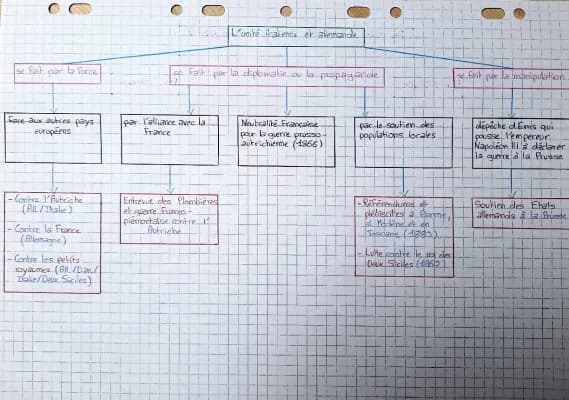 L'unité italienne et allemande
se fait par la force
se fait par la diplomatie ou la propagande
se fait par la manipulation
Face aux autres pays
européens
par l'alliance avec la
France
Neutralité Française
pour la guerre prusso-
autrichienne (1866)
par le soutien des
populations locales
dépêche d'Ems qui
pousse l'empereur
Napoléon III à déclarer
la guerre à la Prusse
- Contre l'Autriche
(All./Italie)
- Contre la France
(Allemagne)
- Contre les petits
royaumes (All./Dan/
Italie/Deux Siciles)
Entrevue des Plombières
et guerre franco-
piémontaise contre l'
Autriche
- Référendums et
plébiscites à Parme,
à Modène et en
Toscane
- Lutte contre le roi des
Deux Siciles (1860)
Soutien des Etats
allemands à la Prusse